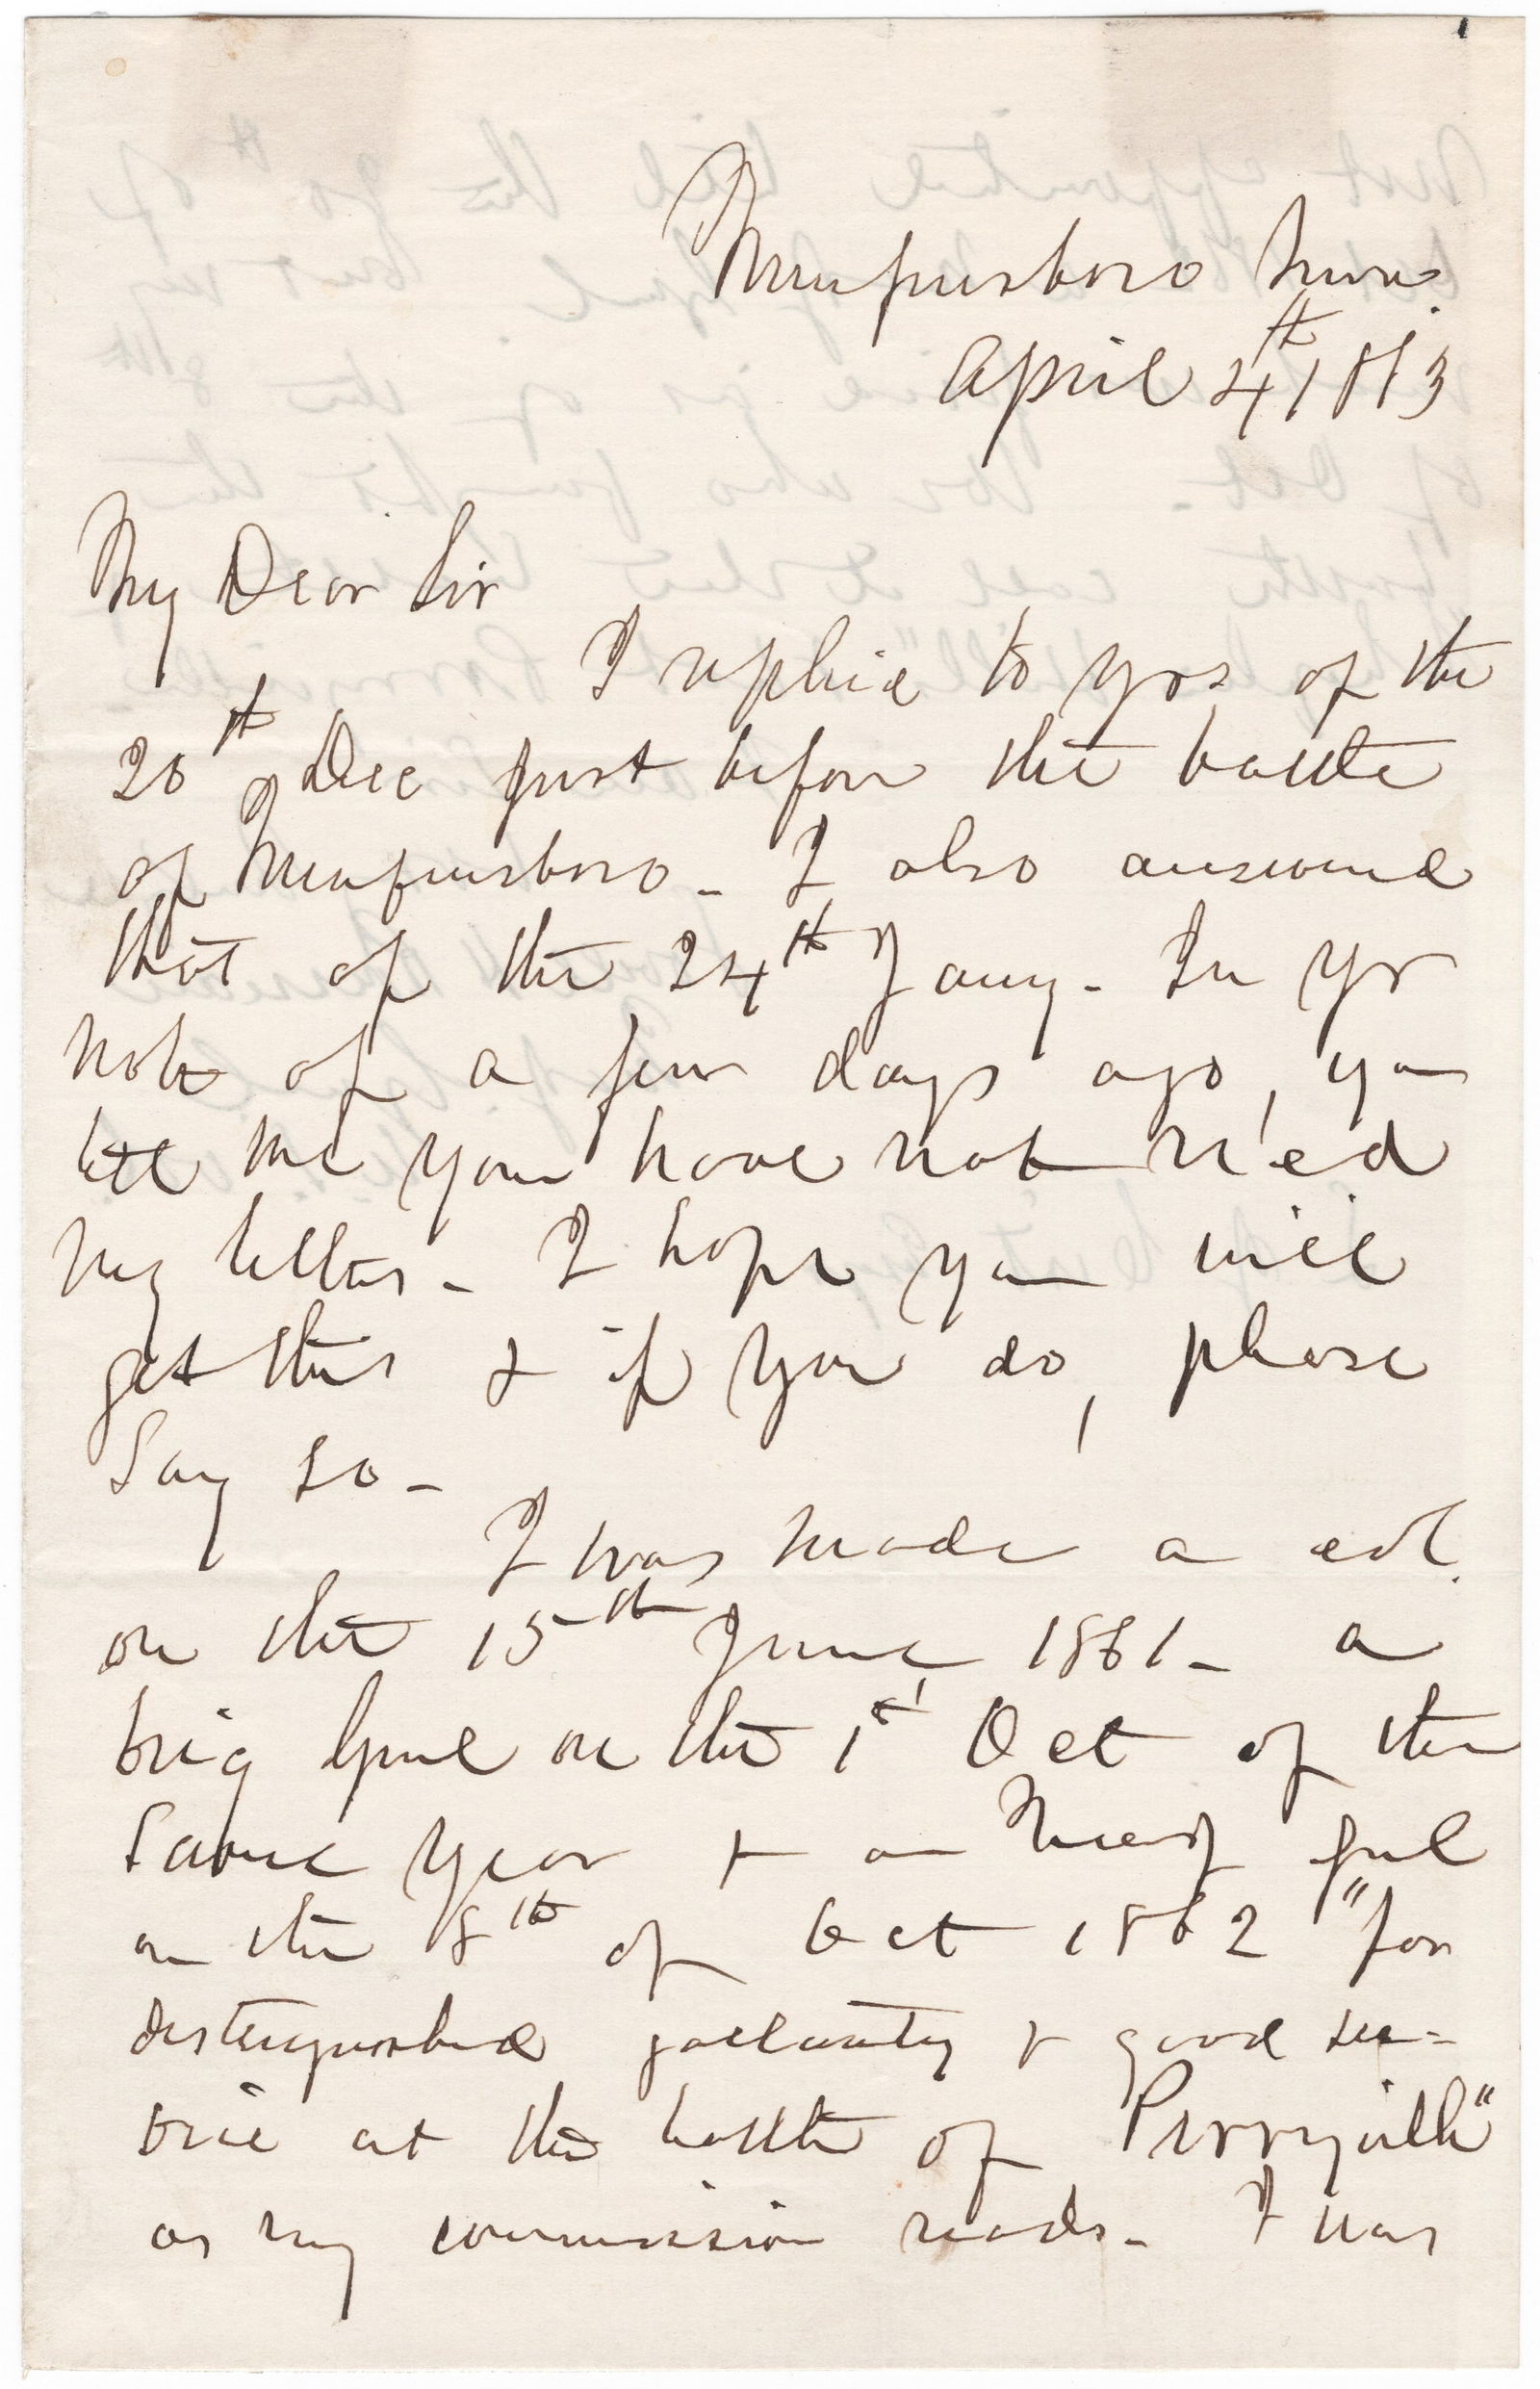 Murfreesboro Tenn.
April 4th 1863
My Dear Sir
I replied to yrs of the
20th Dec just before the battle
of Murfreesboro - I also answered
that of the 24th Jany - In yr
note of a few days ago, you
tell me you have not rec'ed
my letters - I hope you will
get this & if you do, please
say so -
I was made a col.
on the 15th June 1861 - a
brig Genl on the 1st Oct of the
same year & a Maj genl
on the 8th of Oct 1862 "for
distinguished gallantry & good ser=
vice at the battle of Perryville"
as my commission reads - I was